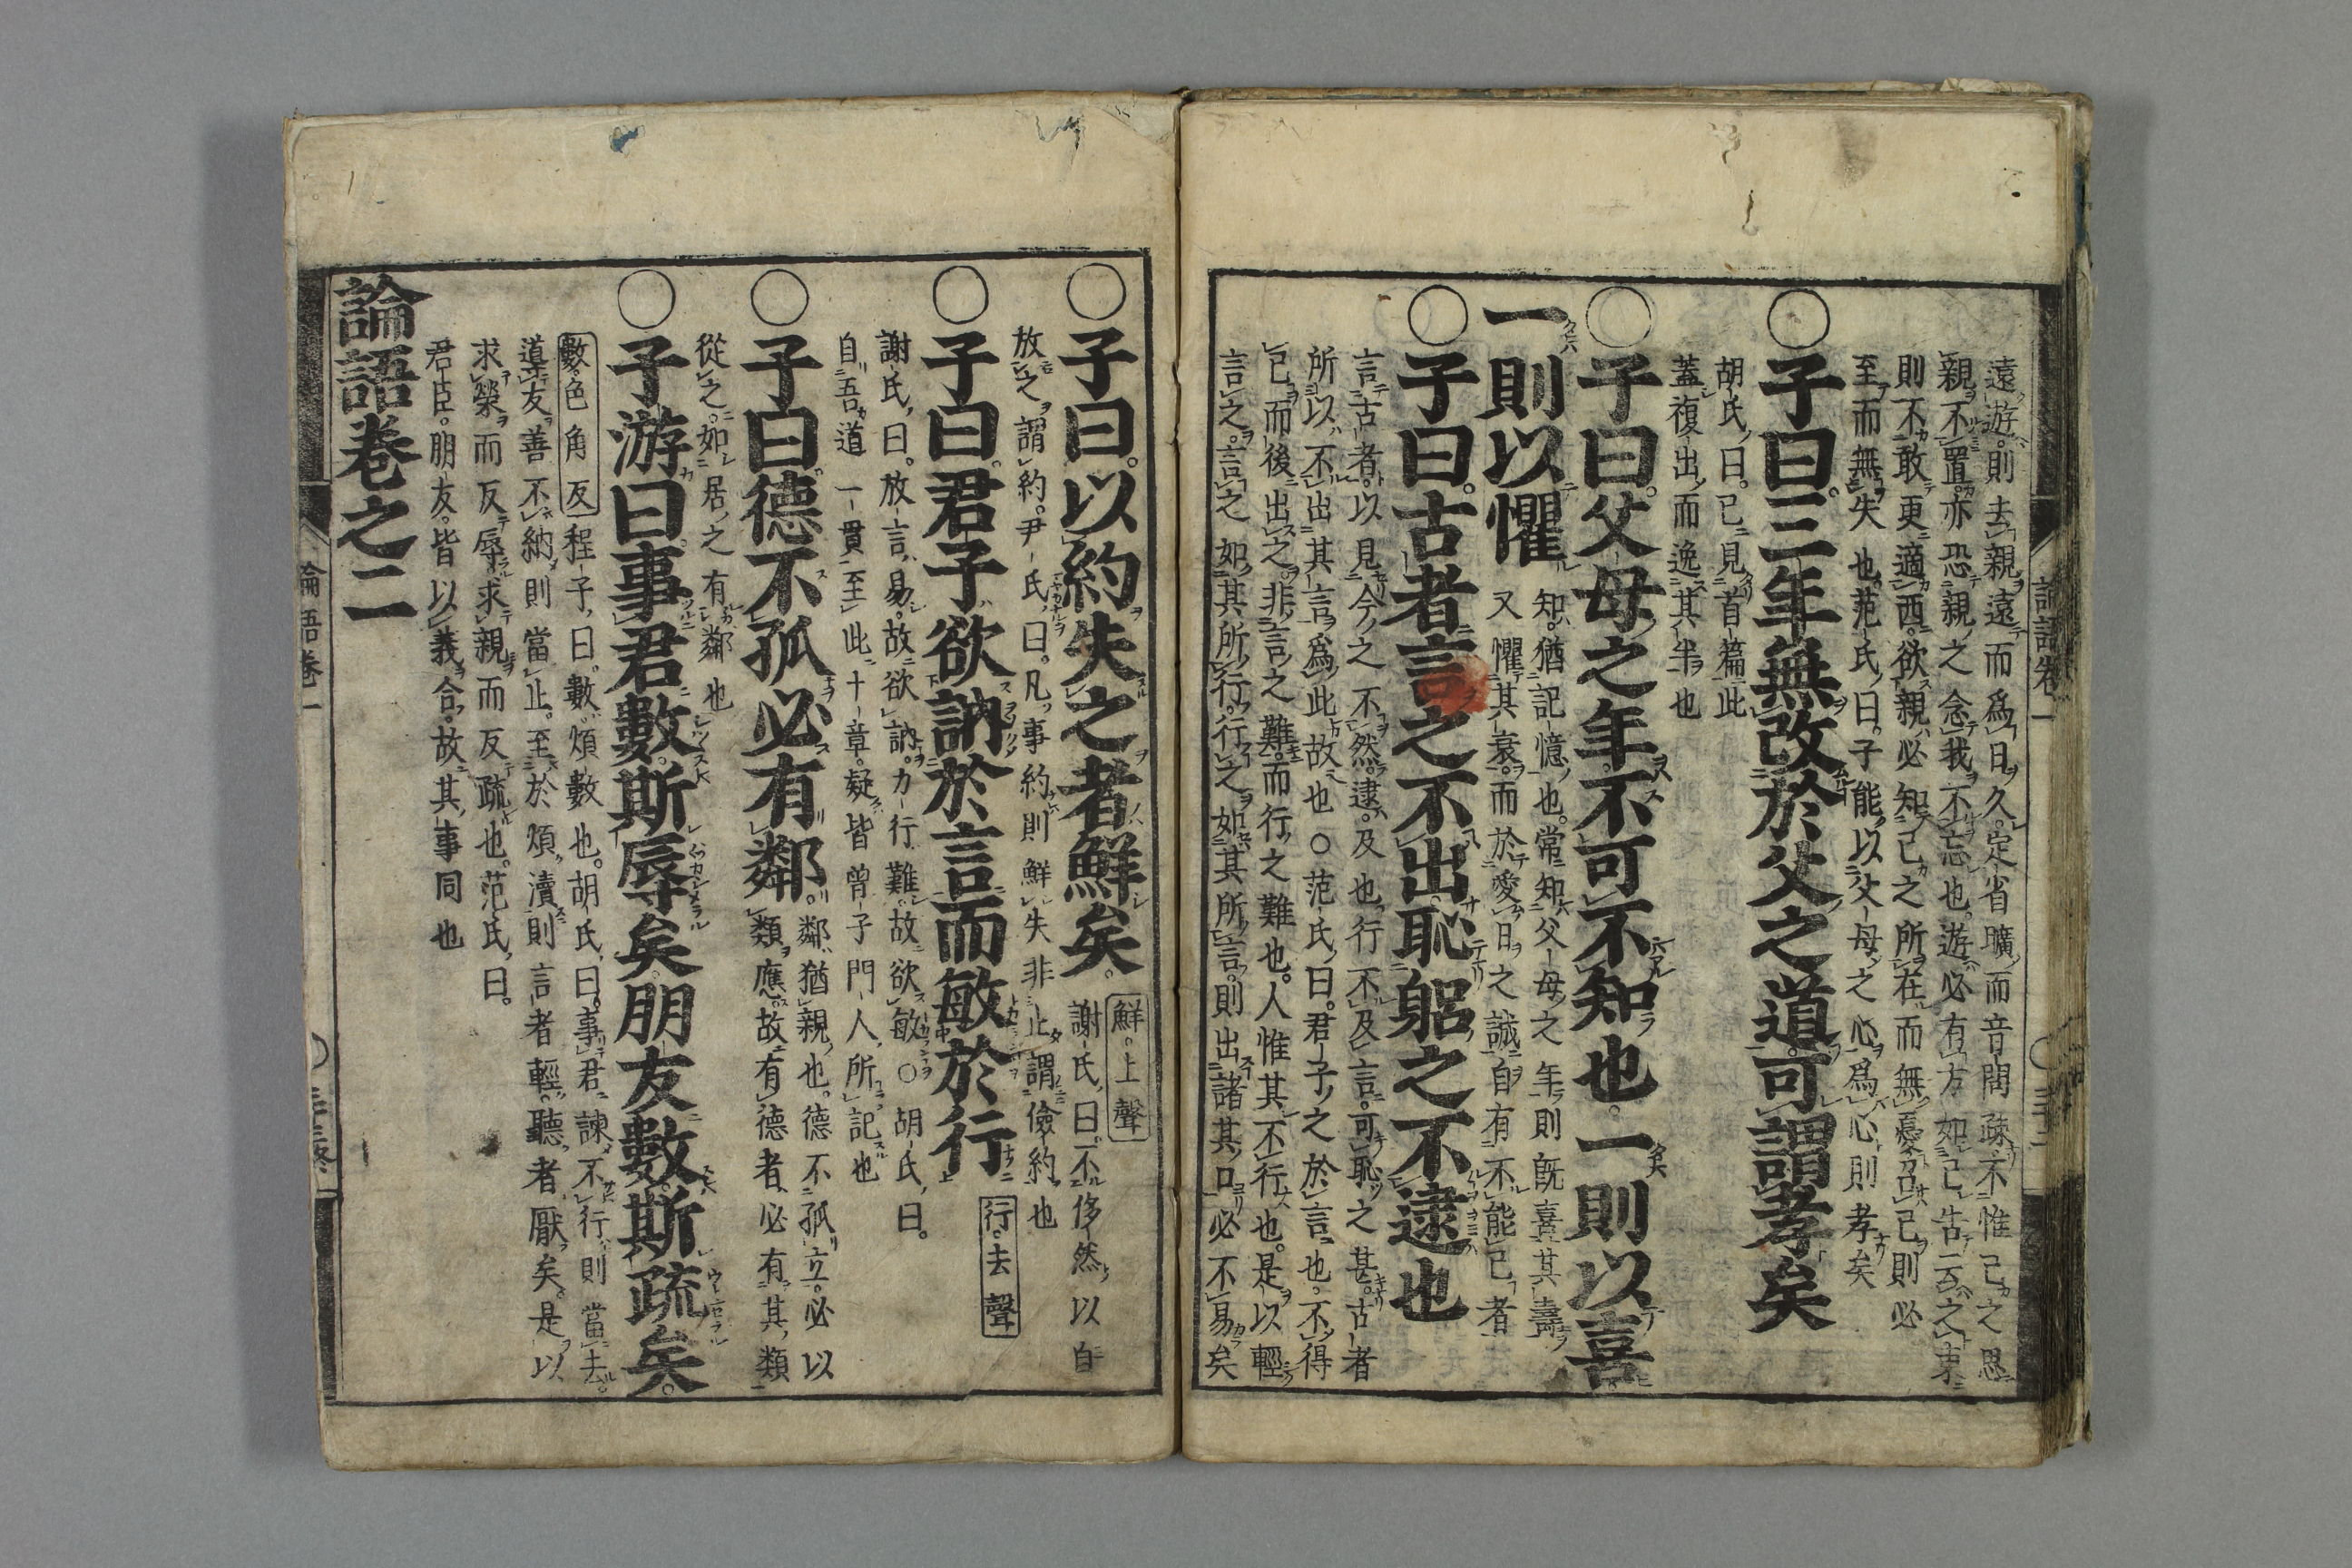 遠遊。則去親遠而爲日久。定省曠而音問疎。不惟己之思
親不置。亦恐親之念我不忘也。遊必有方。如己告云之東
則不敢更適西。欲親必知己之所在而無憂。召己則必
至而無失也。范氏曰。子能以父母之心爲心則孝矣
○子曰。三年無改於父之道。可謂孝矣
胡氏曰。已見首篇。此
蓋復出。而逸其半也
○子曰。父母之年。不可不知也。一則以喜
一則以懼
知。猶記憶也。常知父母之年。則既喜其壽
又懼其衰。而於愛日之誠。自有不能已者
○子曰。古者言之不出。恥躬之不逮也
言古者。以見今之不然。逮。及也。行不及言。可恥之甚。古者
所以不出其言。爲此故也○范氏曰。君子之於言也。不得
已而後出之。非言之難。而行之難也。人惟其不行也。是以輕
言之。言之如其所行。行之如其所言。則出諸其口必不易矣
論語卷一
○子曰。以約失之者鮮矣。
鮮。上聲
謝氏曰。不侈然以自
放之謂約。尹氏曰。凡事約則鮮失。非止謂儉約也
○子曰。君子欲訥於言而敏於行
行。去聲
謝氏曰。放言易。故欲訥。力行難。故欲敏○胡氏曰。
自吾道一貫至此十章。疑皆曾子門人所記也
○子曰。德不孤。必有鄰。
鄰。猶親也。德不孤立。必以
類應。故有德者。必有其類
從之。如居之有鄰也
○子游曰。事君數。斯辱矣。朋友數。斯疏矣。
數。色角反
程子曰。數。煩數也。胡氏曰。事君諫不行則當去。
導友善不納則當止。至於煩瀆。則言者輕。聽者厭矣。是以
求榮而反辱。求親而反疏也。范氏曰。
君臣。朋友。皆以義合。故其事同也
論語卷之二
論語卷一